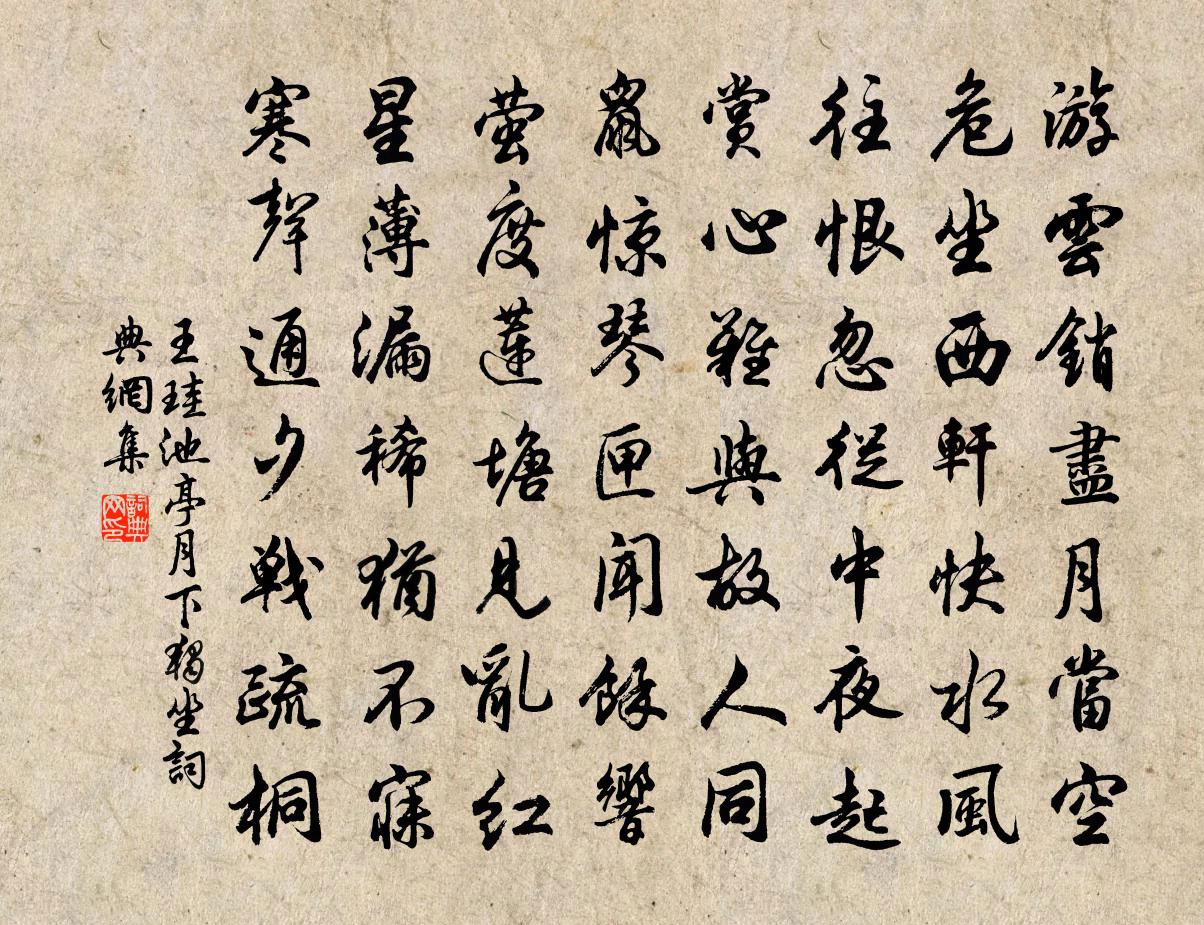 游雲銷盡月當空
危坐西軒快水風
往恨忽從中夜起
賞心難與故人同
鼠惊琴匣聞餘響
萤度蓮塘見亂红
星薄漏稀猶不寐
寒聲通夕戰疏桐
王珪池亭月下獨坐詞
典網集
詞典網印